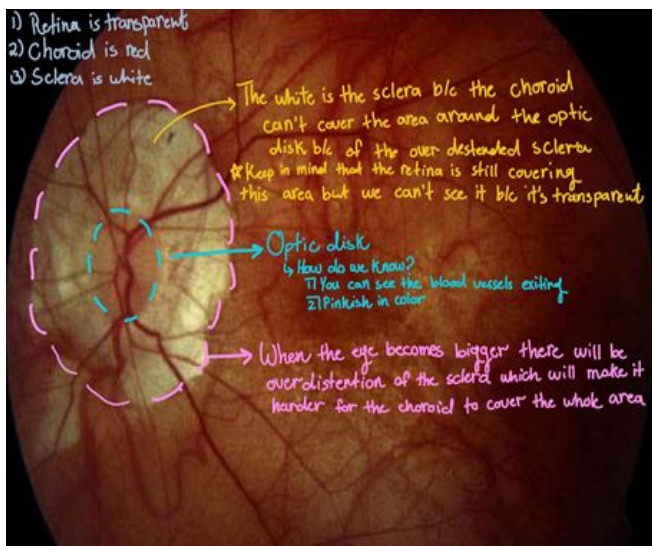 1) Retina is transparent
2) Choroid is red
3) Sclera is white
The white is the sclera b/c the choroid
can't cover the area around the optic
disk b/c of the over destended sclera
* Keep in mind that the retina is still covering
this area but we can't see it b/c it's transparent
Optic disk
↳ How do we know?
1) You can see the blood vessels exiting
2) Pinkish in color
When the eye becomes bigger there will be
overdistention of the sclera which will make it
harder for the choroid to cover the whole area